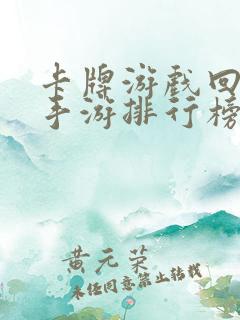 卡牌游戏回
手游排行榜
黄元荣
未经同意禁止转载